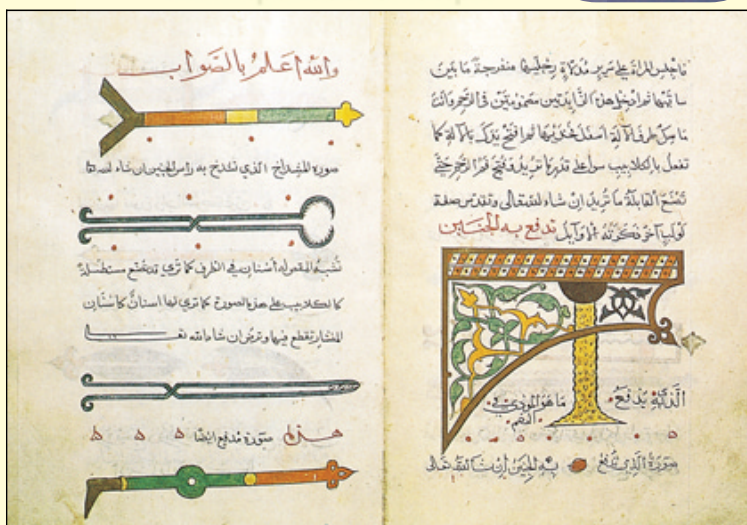 فاجلس المراة على سرير مدلاة رجليها منفرجة ما بين
ساقيها ثم ادخل هذه الزايدتين مضمومتين في الرحم وانت
ماسك طرف الآلة اسفل فخذيها ثم افتح يدك بالآلة كما
تفعل بالكلاليب سوا على قدر ما تريد وفتح فم الرحم حتى
تصنع القابلة ما تريد ان شاء الله تعالى صفة
لولب آخر ذكرته الاوايل تدفع به الجنين
الذي يدفع ما هو المودي في
صورة الذي تدفع به الجنين ان شا الله تعالى
والله اعلم بالصواب
صورة المشداخ الذي تشدخ به راس الجنين ان شاء الله
تشبه المقص له اسنان في الطرف كما ترى قد تصنع مستطيلة
كالكلاليب على هذه الصورة كما ترى لها اسنان كاسنان
المنشار يقطع فيها وترض ان شاء الله تعالى
هذه صورة مدفع ايضا ه ه ه